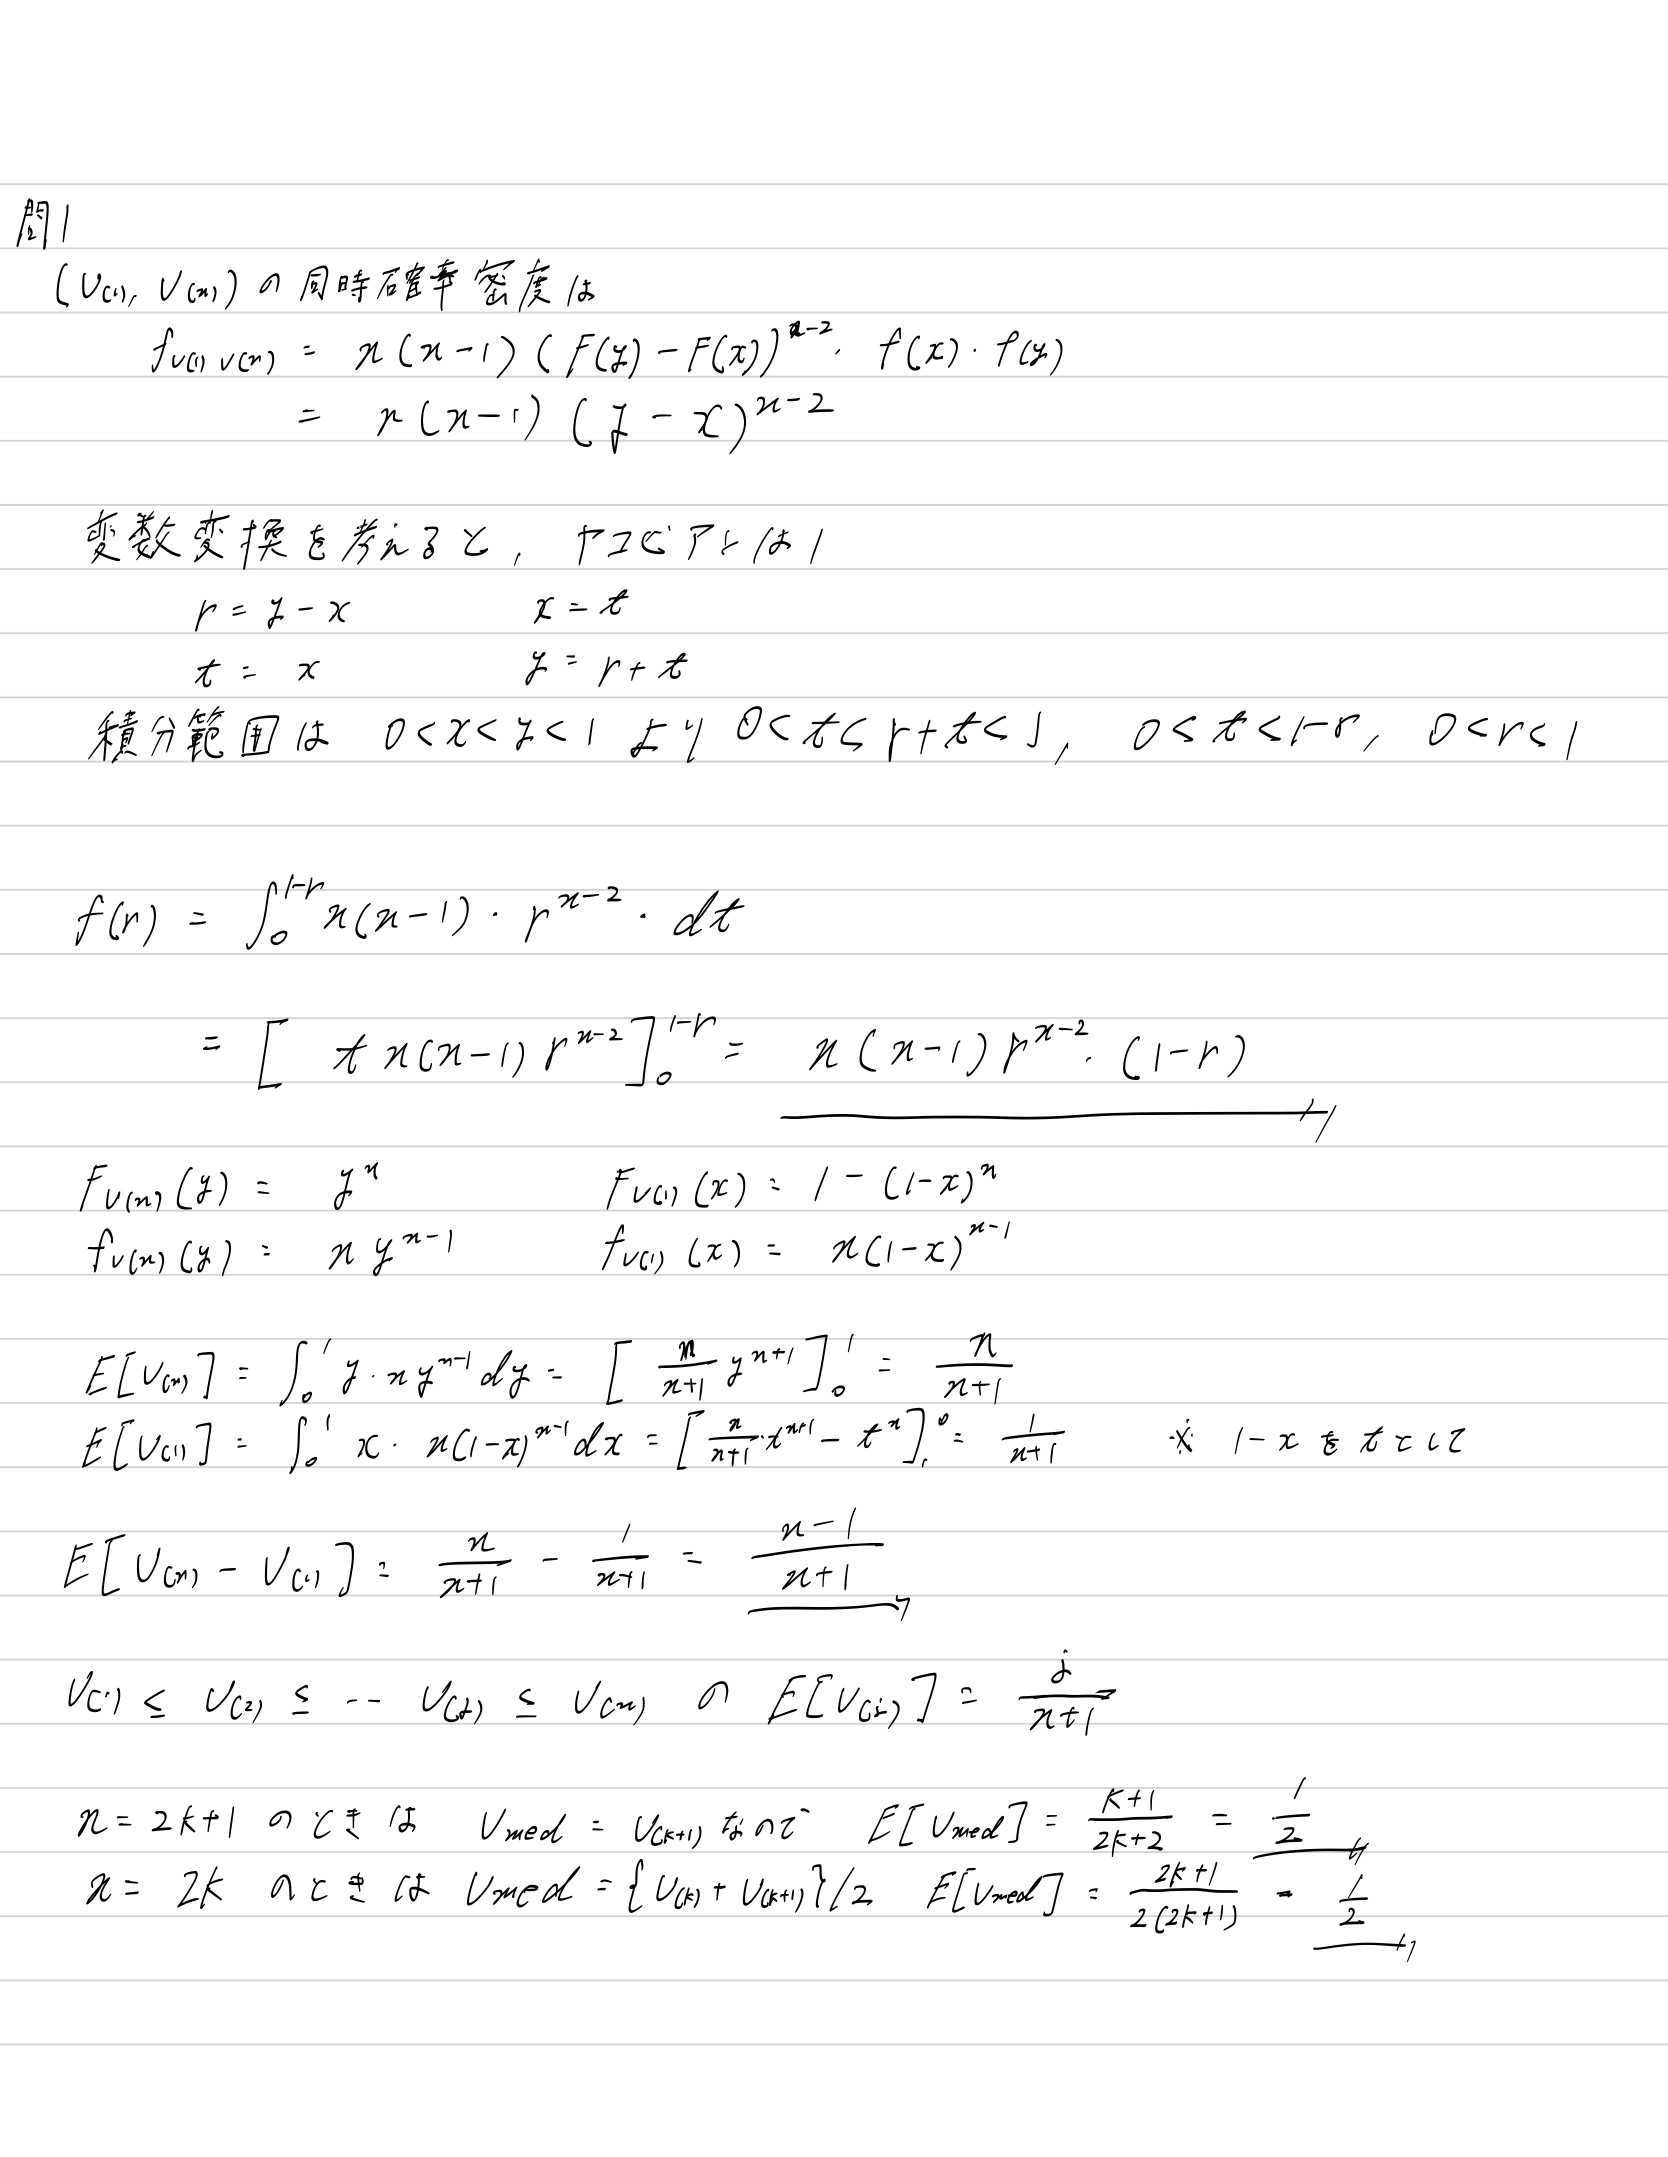 問1
(U(1), U(n)) の同時確率密度は
fU(1)U(n) = n(n-1)(F(y)-F(x))^{n-2}・f(x)・f(y)
= n(n-1)(y-x)^{n-2}
変数変換を考えると, ヤコビアンは1
r = y-x x = t
t = x y = r+t
積分範囲は 0<x<y<1 より 0<t<r+t<1, 0<t<1-r, 0<r<1
f(r) = ∫_0^{1-r} n(n-1)・r^{n-2}・dt
= [t n(n-1) r^{n-2}]_0^{1-r} = n(n-1) r^{n-2}・(1-r)
FU(n)(y) = y^n FU(1)(x) = 1-(1-x)^n
fU(n)(y) = n y^{n-1} fU(1)(x) = n(1-x)^{n-1}
E[U(n)] = ∫_0^1 y・n y^{n-1} dy = [n/(n+1) y^{n+1}]_0^1 = n/(n+1)
E[U(1)] = ∫_0^1 x・n(1-x)^{n-1} dx = [n/(n+1)・t^{n+1} - t^n]_1^0 = 1/(n+1) ※ 1-xをtとして
E[U(n) - U(1)] = n/(n+1) - 1/(n+1) = (n-1)/(n+1)
U(1) ≤ U(2) ≤ -- U(j) ≤ U(n) の E[U(j)] = j/(n+1)
n = 2k+1 のときは Umed = U(k+1) なので E[Umed] = (k+1)/(2k+2) = 1/2
n = 2k のときは Umed = {U(k) + U(k+1)}/2 E[Umed] = (2k+1)/(2(2k+1)) = 1/2